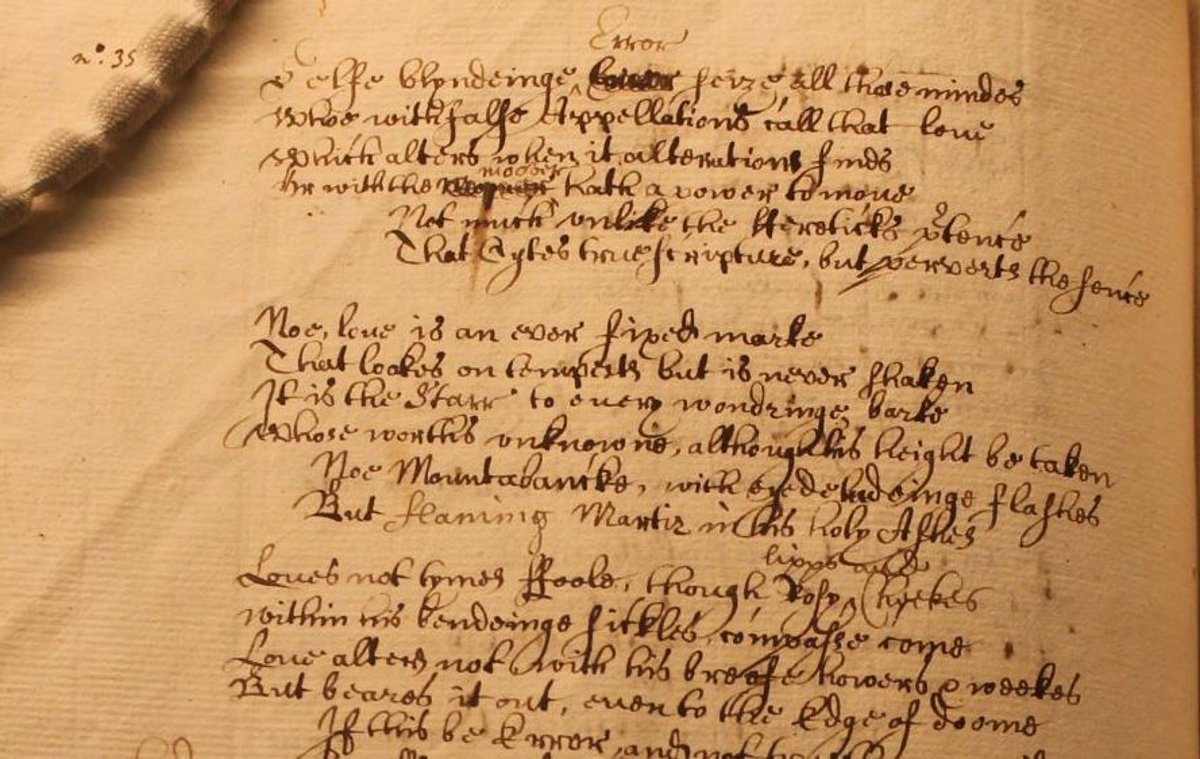 n:o 35
Error
Selfe blyndeinge seize all those mindes
Whoe with false Appellations call that loue
Which alters when it alterations finds
moover
Or with the hath a power to moue
Not much vnlike the Hereticks ptence
That Cytes true scripture, but perverts the sence
Noe, loue is an ever fixed marke
That lookes on tempests but is never shaken
It is the Starr to euery wondringe barke
Whose worths vnknowne, although his height be taken
Noe Mountabancke, with eyedeludeinge flashes
But flaming Martir in his holy Ashes
lipps and
Loues not tymes ffoole, though Rosy Cheekes
within his bendeinge sickles, compasse come
Loue alters not with his breefe howers & weekes
But beares it out, euen to the Edge of doome
If this be Error and not